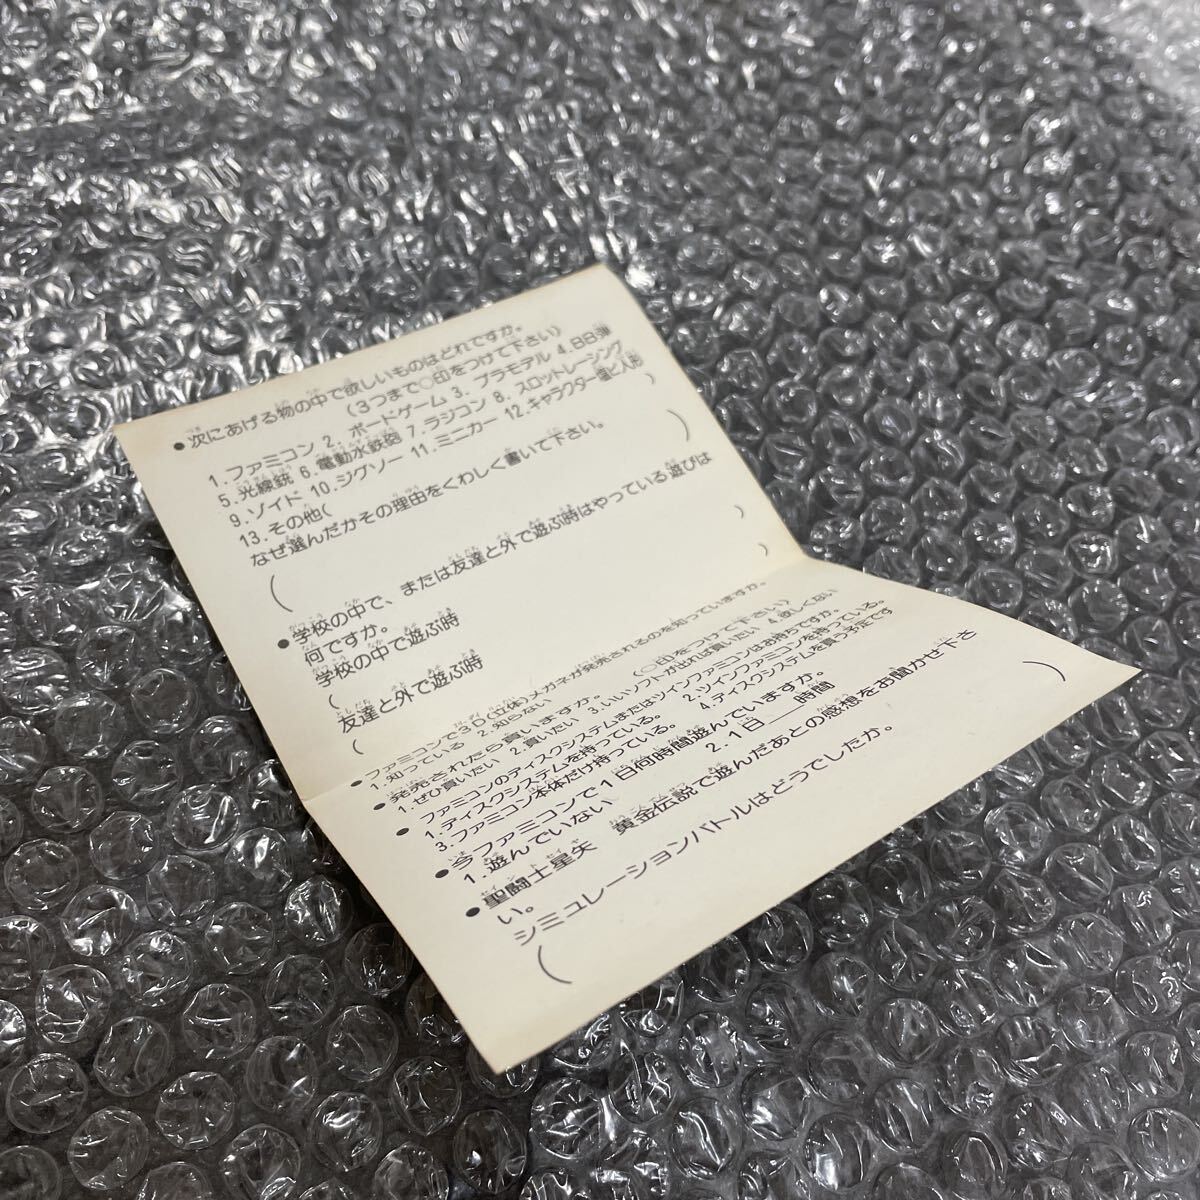 ●次にあげる物の中で欲しいものはどれですか。
(3つまで○印をつけて下さい)
1.ファミコン 2.ボードゲーム 3.プラモデル 4.BB弾
5.光線銃 6.電動水鉄砲 7.ラジコン 8.スロットレーシング
9.ゾイド 10.ジグソー 11.ミニカー 12.キャラクター塩ビ人形
13.その他( )
なぜ選んだかその理由をくわしく書いて下さい。
( )
●学校の中で、または友達と外で遊ぶ時はやっている遊びは
何ですか。
学校の中で遊ぶ時
( )
友達と外で遊ぶ時
( )
●ファミコンで3D(立体)メガネが発売されるのを知っていますか。
1.知っている 2.知らない (○印をつけて下さい)
●発売されたら買いますか。
1.ぜひ買いたい 2.買いたい 3.いいソフトが出れば買いたい 4.欲しくない
●ファミコンのディスクシステムまたはツインファミコンはお持ちですか。
1.ディスクシステムを持っている。 2.ツインファミコンを持っている。
3.ファミコン本体だけ持っている。 4.ディスクシステムを買う予定です
●今ファミコンで1日何時間遊んでいますか。
1.遊んでいない 2.1日__時間
●聖闘士星矢 黄金伝説で遊んだあとの感想をお聞かせ下さ
い。
シミュレーションバトルはどうでしたか。
( )